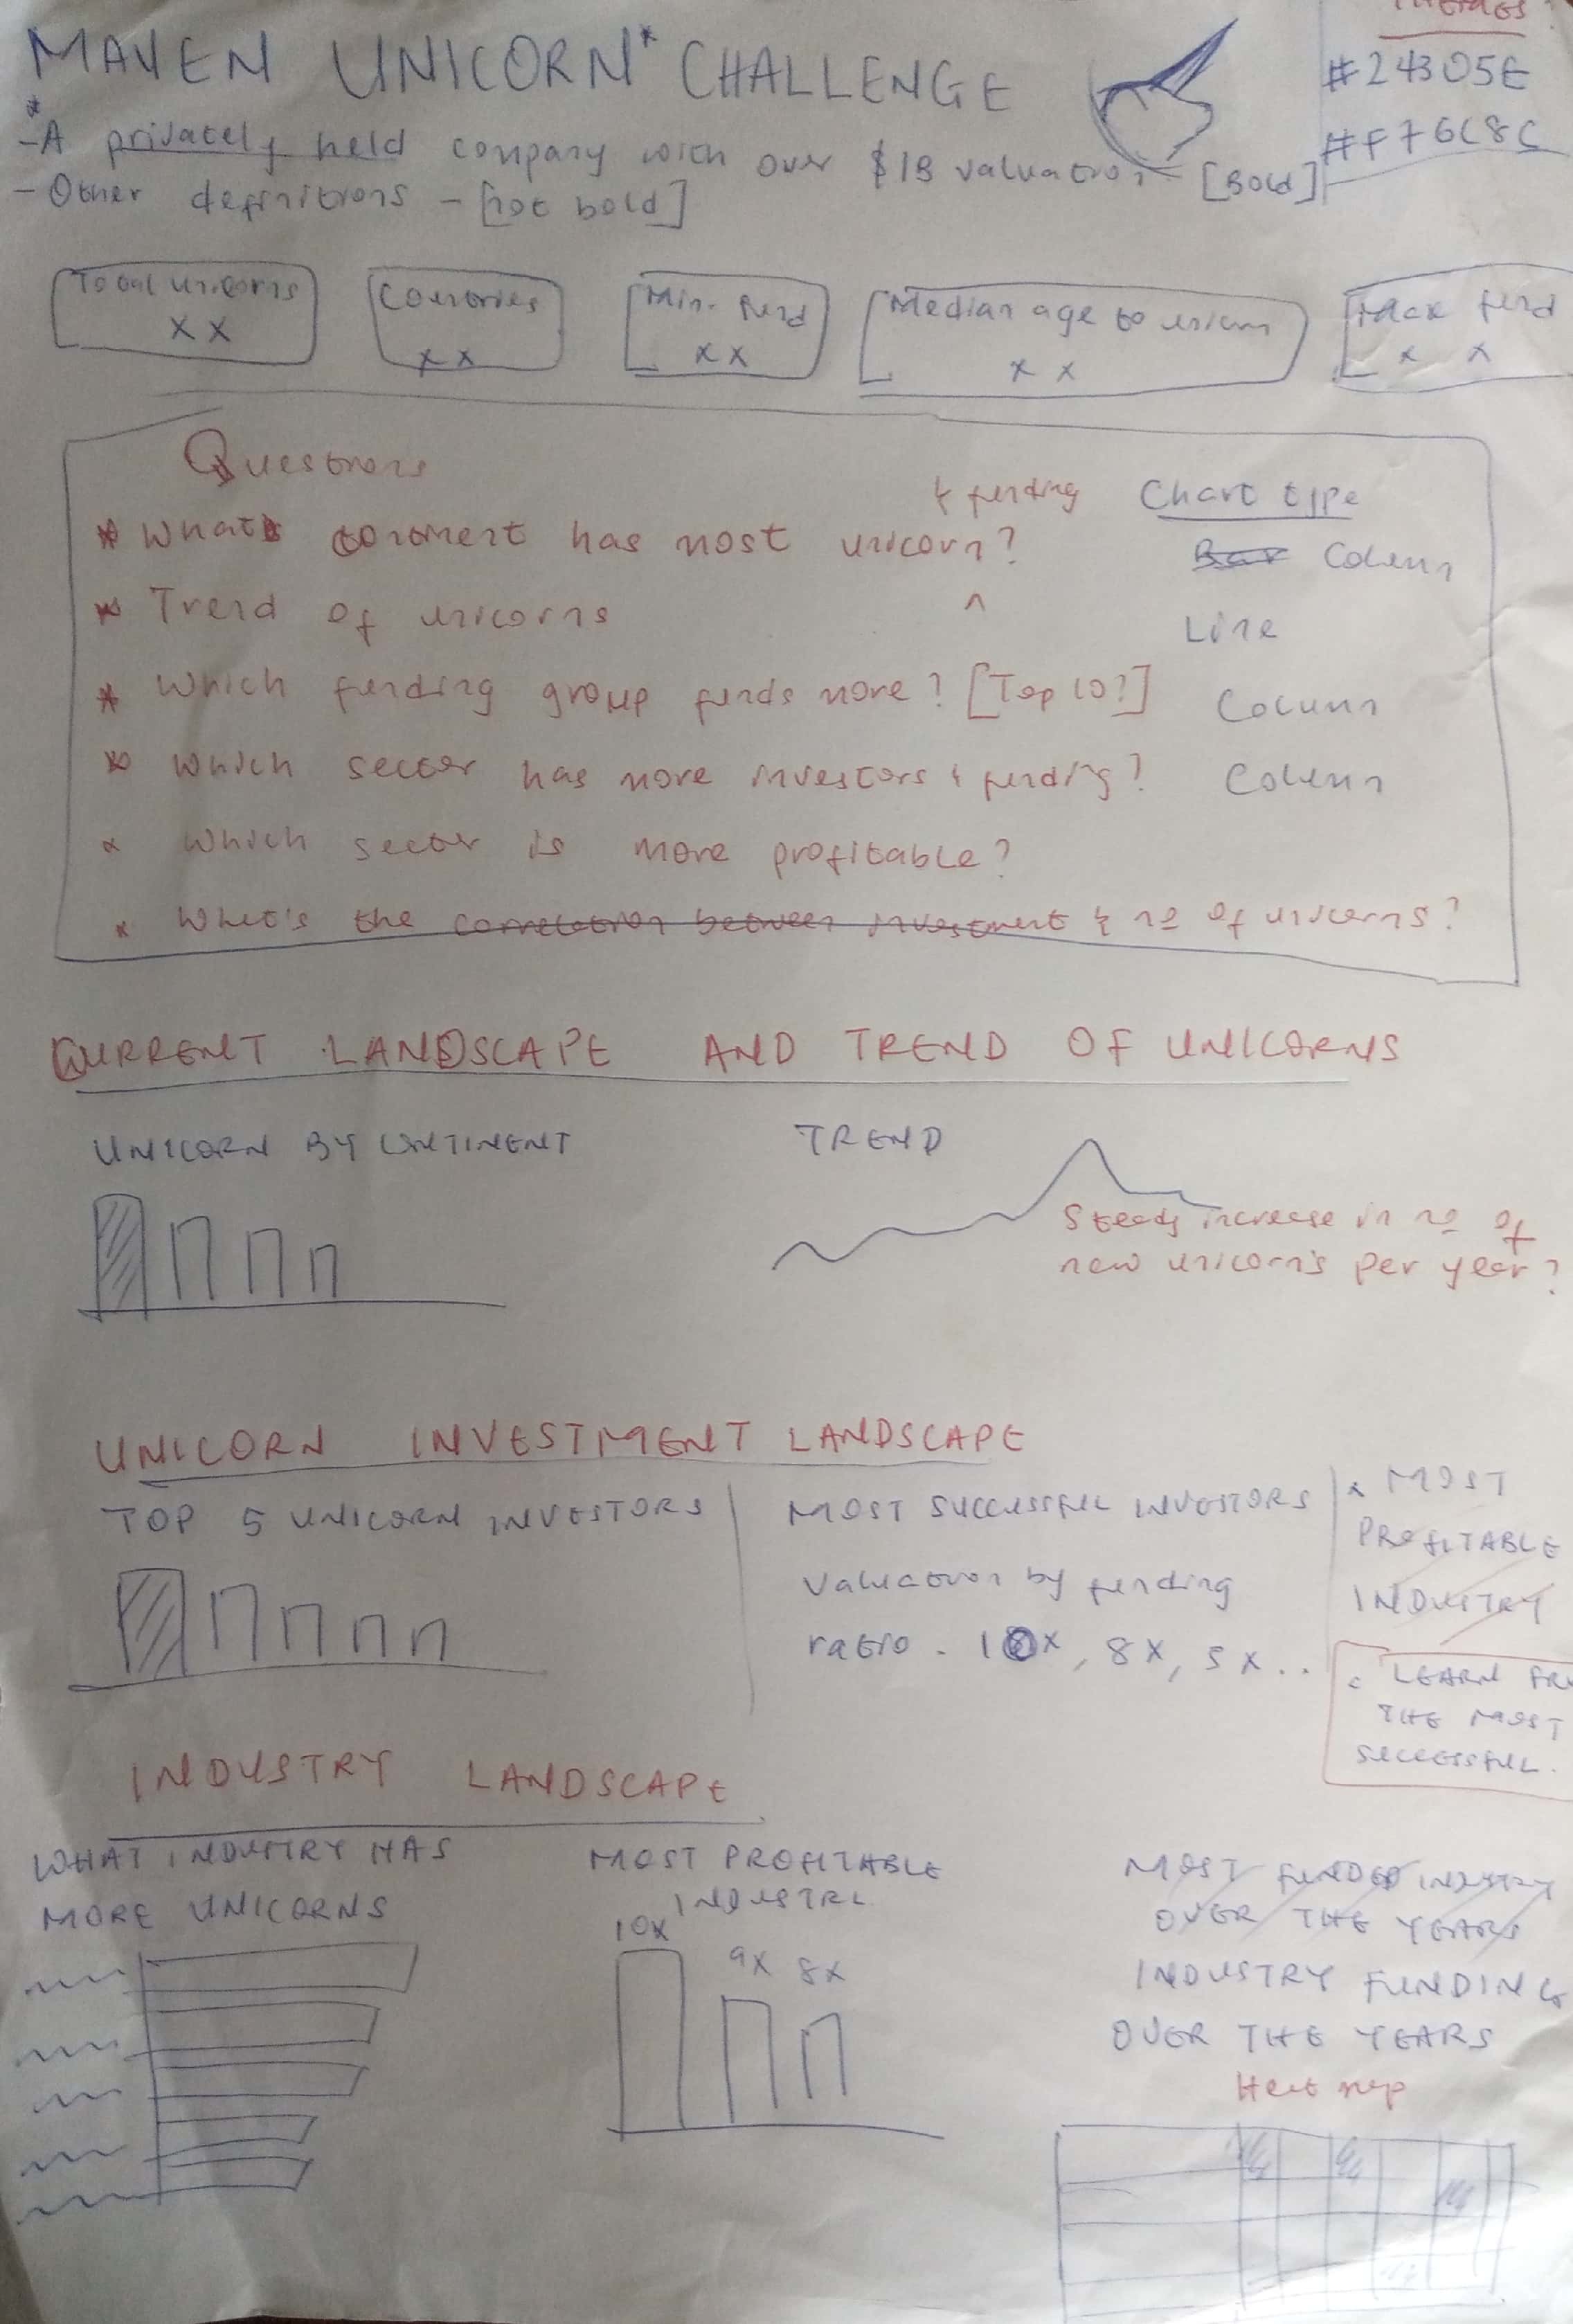 THEMES
MAVEN UNICORN* CHALLENGE
#24305E
#F76C8C
*
-A privately held company with over $1B valuation - [Bold]
- Other definitions - [not bold]
Total unicorns
XX
Countries
XX
Min. fund
XX
Median age to unicorn
XX
Max fund
X X
Questions
& funding
Chart type
* What continent has most unicorn?
Bar Column
* Trend of unicorns
^
Line
* Which funding group funds more? [Top 10?]
Column
* Which sector has more investors & funding?
Column
* Which sector is more profitable?
* What's the correlation between investment & no of unicorns?
CURRENT LANDSCAPE AND TREND OF UNICORNS
UNICORN BY CONTINENT
TREND
Steady increase in no of
new unicorns per year?
UNICORN INVESTMENT LANDSCAPE
TOP 5 UNICORN INVESTORS
MOST SUCCESSFUL INVESTORS
Valuation by funding
ratio - 10x, 8x, 5x..
MOST
PROFITABLE
INDUSTRY
LEARN
THE MOST
SUCCESSFUL.
INDUSTRY LANDSCAPE
WHAT INDUSTRY HAS
MORE UNICORNS
MOST PROFITABLE
INDUSTRY
10x
9x 8x
MOST FUNDED INDUSTRY
OVER THE YEARS
INDUSTRY FUNDING
OVER THE YEARS
Heat map